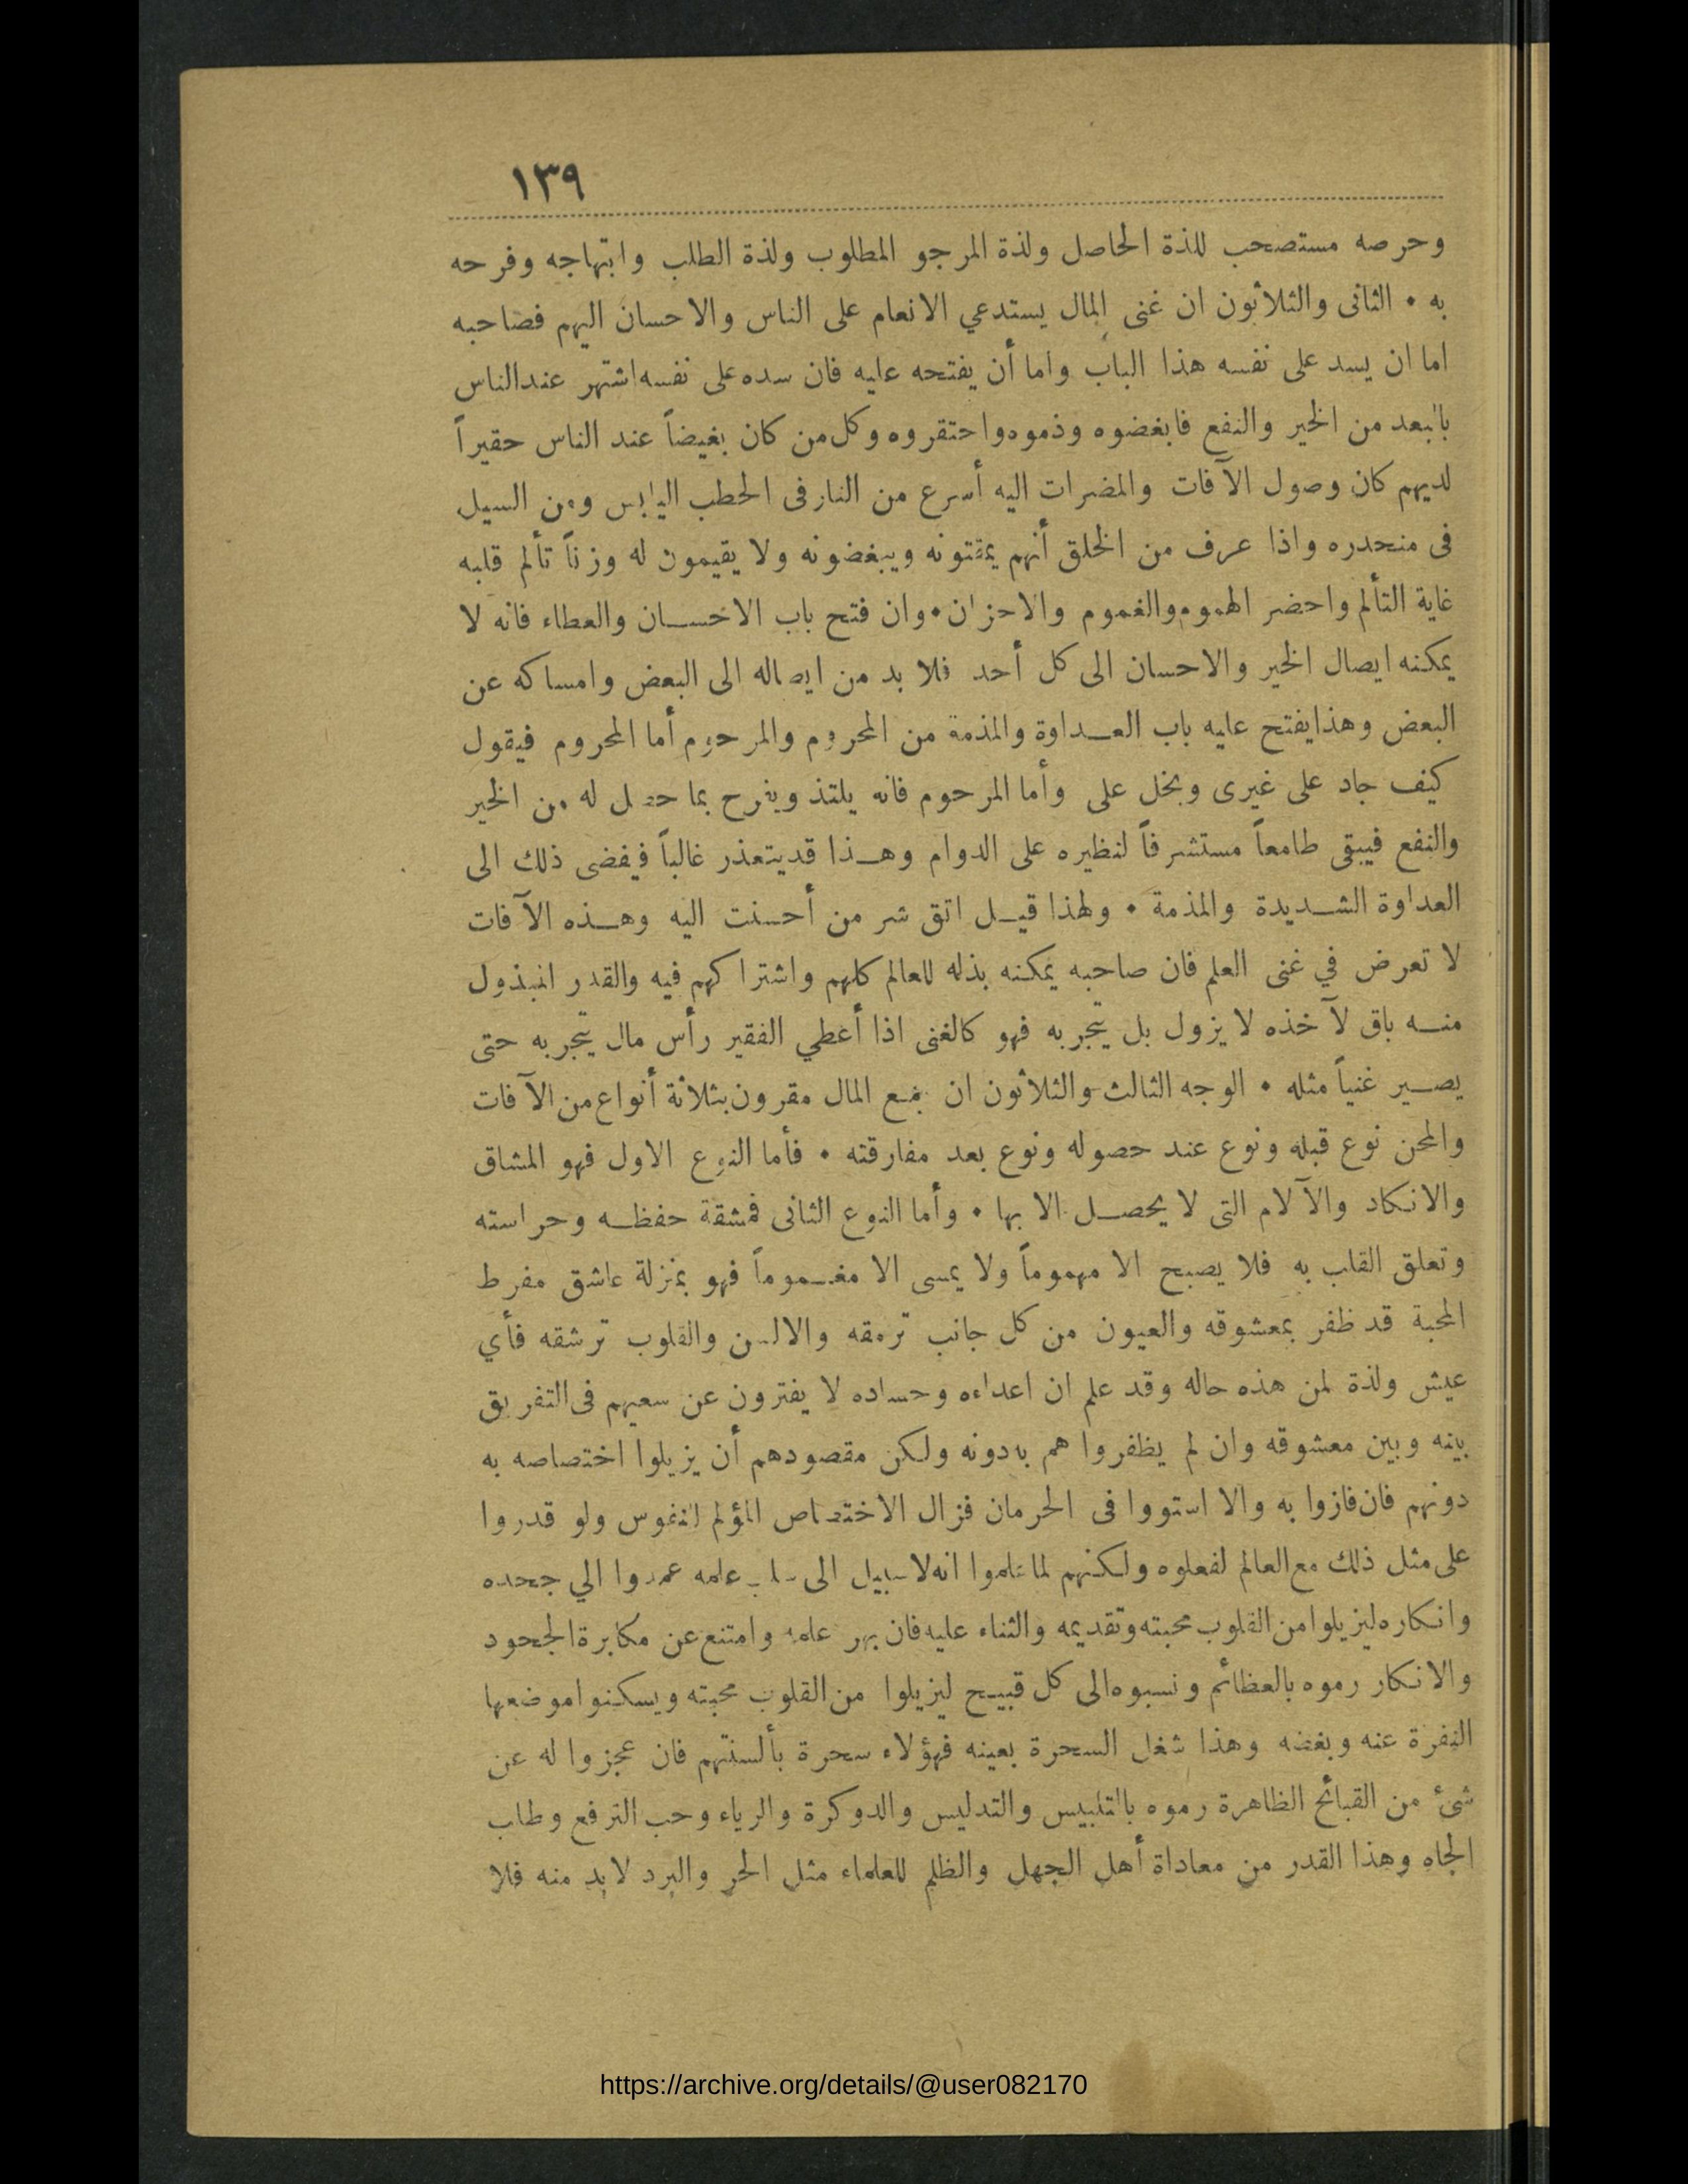 ١٣٩
وحرصه مستصحب للذة الحاصل ولذة المرجو المطلوب ولذة الطلب وابتهاجه وفرحه
به • الثانى والثلاثون ان غنى المال يستدعي الانعام على الناس والاحسان اليهم فصاحبه
اما ان يسد على نفسه هذا الباب واما أن يفتحه عليه فان سده على نفسه اشتهر عند الناس
بالبعد من الخير والنفع فابغضوه وذموه واحتقروه وكل من كان بغيضاً عند الناس حقيراً
لديهم كان وصول الآفات والمضرات اليه أسرع من النار فى الحطب اليابس ومن السيل
فى منحدره واذا عرف من الخلق أنهم يمقتونه ويبغضونه ولا يقيمون له وزناً تألم قلبه
غاية التألم واحضر الهموم والغموم والاحزان • وان فتح باب الاحسان والعطاء فانه لا
يمكنه ايصال الخير والاحسان الى كل أحد فلا بد من ايصاله الى البعض وامساكه عن
البعض وهذا يفتح عليه باب العداوة والمذمة من المحروم والمرحوم أما المحروم فيقول
كيف جاد على غيرى وبخل على وأما المرحوم فانه يلتذ ويفرح بما حصل له من الخير
والنفع فيبقى طامعاً مستشرفاً لنظيره على الدوام وهذا قد يتعذر غالباً فيفضى ذلك الى
العداوة الشديدة والمذمة • ولهذا قيل اتق شر من أحسنت اليه وهذه الآفات
لا تعرض في غنى العلم فان صاحبه يمكنه بذله للعالم كلهم واشتراكهم فيه والقدر المبذول
منه باق لآخذه لا يزول بل يتجر به فهو كالغنى اذا أعطي الفقير رأس مال يتجر به حتى
يصير غنياً مثله • الوجه الثالث والثلاثون ان جمع المال مقرون بثلاثة أنواع من الآفات
والمحن نوع قبله ونوع عند حصوله ونوع بعد مفارقته • فأما النوع الاول فهو المشاق
والانكاد والآلام التى لا يحصل الا بها • وأما النوع الثانى فمشقة حفظه وحراسته
وتعلق القلب به فلا يصبح الا مهموماً ولا يمسى الا مغموماً فهو بمنزلة عاشق مفرط
المحبة قد ظفر بمعشوقه والعيون من كل جانب ترمقه والالسن والقلوب ترشقه فأي
عيش ولذة لمن هذه حاله وقد علم ان اعداءه وحساده لا يفترون عن سعيهم فى التفريق
بينه وبين معشوقه وان لم يظفروا هم به دونه ولكن مقصودهم أن يزيلوا اختصاصه به
دونهم فان فازوا به والا استووا فى الحرمان فزال الاختصاص المؤلم للنفوس ولو قدروا
على مثل ذلك مع العالم لفعلوه ولكنهم لما علموا انه لا سبيل الى سلب علمه عمدوا الي جحده
وانكاره ليزيلوا من القلوب محبته وتقديمه والثناء عليه فان بهر علمه وامتنع عن مكابرة الجحود
والانكار رموه بالعظائم ونسبوه الى كل قبيح ليزيلوا من القلوب محبته ويسكنوا موضعها
النفرة عنه وبغضه وهذا شغل السحرة بعينه فهؤلاء سحرة بألسنتهم فان عجزوا له عن
شئ من القبائح الظاهرة رموه بالتلبيس والتدليس والدوكرة والرياء وحب الترفع وطلب
الجاه وهذا القدر من معاداة أهل الجهل والظلم للعلماء مثل الحر والبرد لا بد منه فلا
https://archive.org/details/@user082170